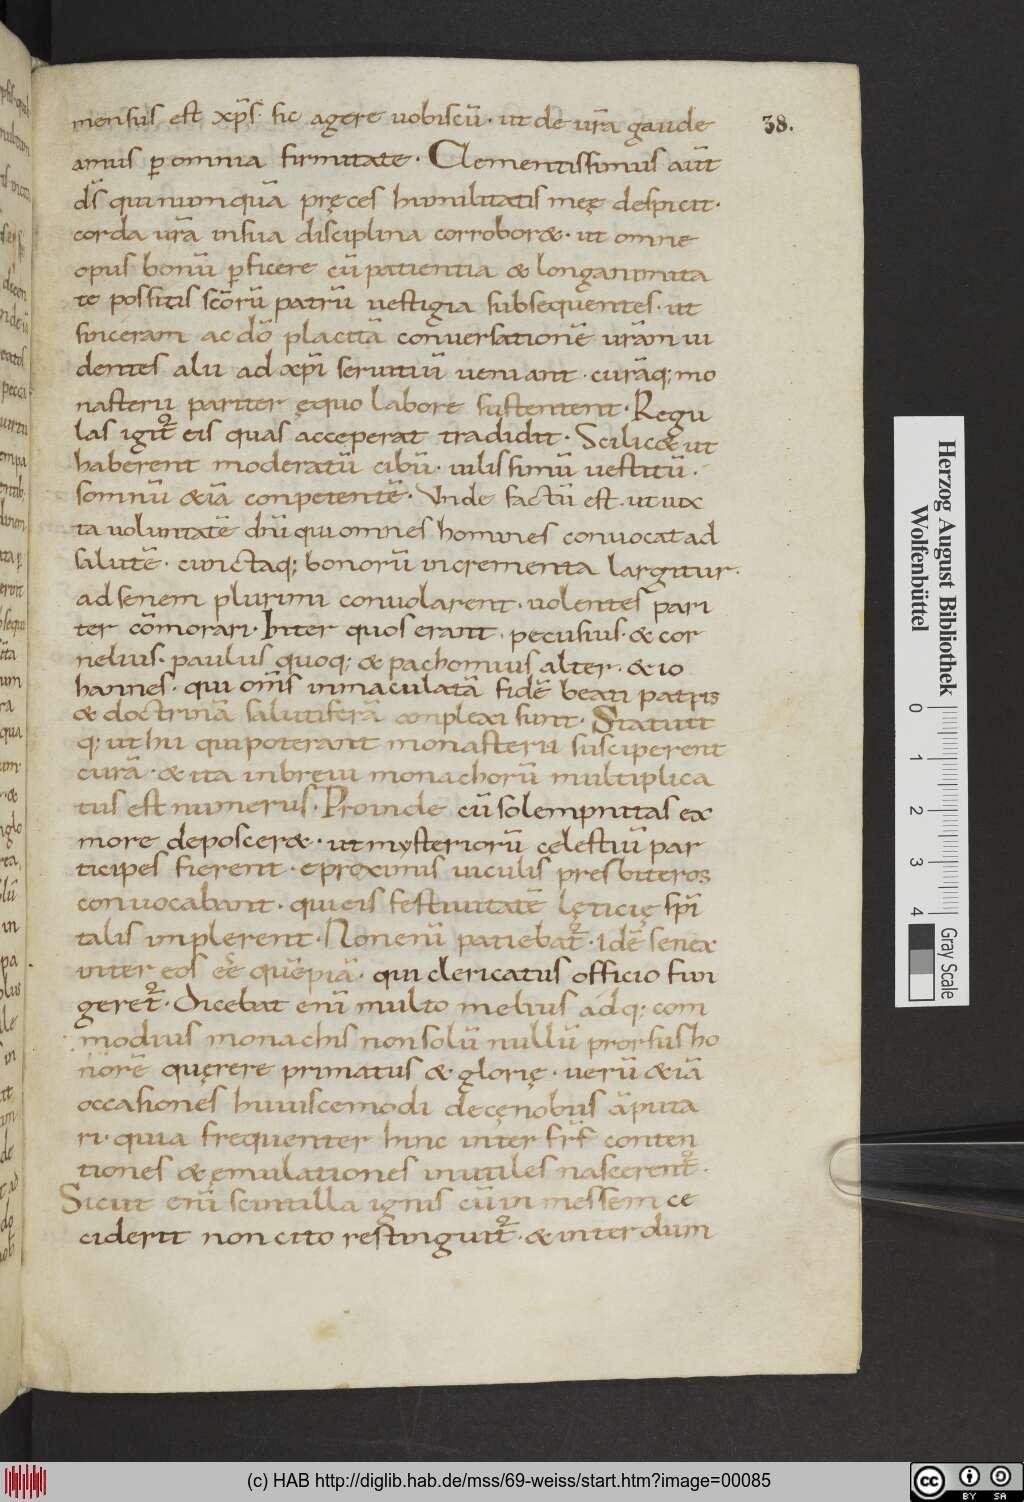 38.
mensus est xp̄s. sic agere uobiscū. ut de ur̄a gaude
amus ꝑ omnia firmitate. Clementissimus aūt
dn̄s qui numquā pręces humilitatis meę despicit.
corda ur̄a in sua disciplina corrobor&. ut omne
opus bonū ꝑficere cū patientia & longanimita
te possitis sc̄orū patrū uestigia subsequentes. ut
sinceram ac dō placitā conuersationē ur̄am ui
dentes alii ad xp̄i seruitiū ueniant. curāq; mo
nasterii pariter ęquo labore sustentent. Regu
las igit᷑ eis quas acceperat tradidit. Scilic& ut
haberent moderatū cibū. uilissimū uestitū.
somnū &iā conpetentē. Vnde factū est. ut iux
ta uoluntatē dn̄i qui omnes homines conuocat ad
salutē. cunctaq; bonorū incrementa largitur.
ad senem plurimi conuolarent. uolentes pari
ter cōmorari. Inter quos erant. pecusius. & cor
nelius. paulus quoq; & pachomius alter. & io
hannes. qui om̄s inmaculatā fidē beati patris
& doctrinā salutiferā complexi sunt. Statuit
q; ut hii qui poterant monasterii susciperent
curā. & ita in breui monachorū multiplica
tus est numerus. Proinde cū solempnitas ex
more deposcer&. ut mysteriorū cęlestiū par
ticipes fierent. e proximis uiculis presbiteros
conuocabant. qui eis festiuitatē lęticię sp̄i
talis implerent. Non enī patiebat᷑. idē senex
inter eos eē quēpiā. qui clericatus officio fun
geret᷑. Dicebat enī multo melius adq; com
modius monachis non solū nullū prorsus ho
norē quęrere primatus & glorię. uerū &iā
occasiones huiuscemodi de cęnobiis āputa
ri. quia frequenter hinc inter fr̄s conten
tiones & ęmulationes inutiles nascerent᷑.
Sicut enī scintilla ignis cū in messem ce
ciderit non cito restinguit᷑. & interdum
Herzog August Bibliothek
Wolfenbüttel
0 1 2 3 4 Gray Scale
(c) HAB http://diglib.hab.de/mss/69-weiss/start.htm?image=00085
cc BY SA